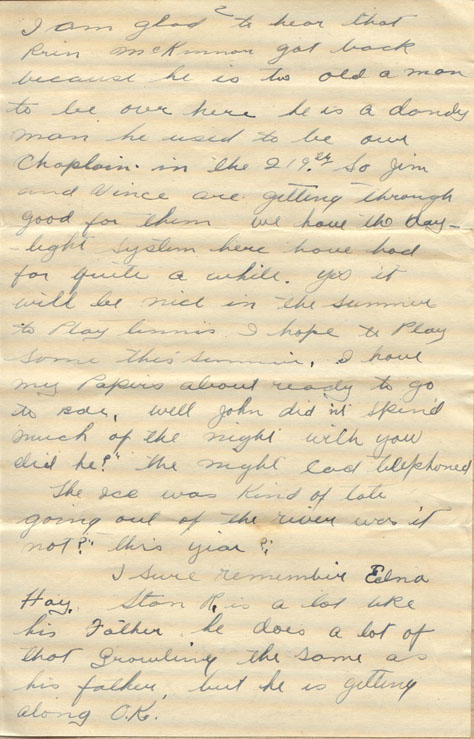 2
I am glad to hear that
Prin McKinnon got back
because he is to old a man
to be over here he is a dandy
man he used to be our
Chaplain. in the 219.
So Jim
and Vince are getting through
good for them we have the day-
light system here have had
for quite a while. yes it
will be nice in the summer
to Play tinnis I hope to Play
some this summer, I have
my Papers about ready to go
to
well John did n't spend
much of the night with you
did he?" the night Ead telephoned
The ice was Kind of late
going out of the river was it
not?" this year?"
I sure remember Edna
Hay. Stan R. is a lot like
his Father. he does a lot of
that Growling the same as
his father, but he is getting
along O.K.